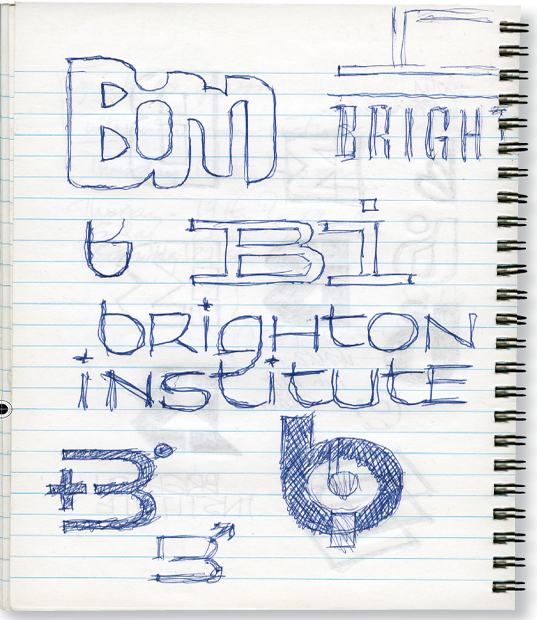 BRIGHT
b Bi
bRigHtON
iNStitutE